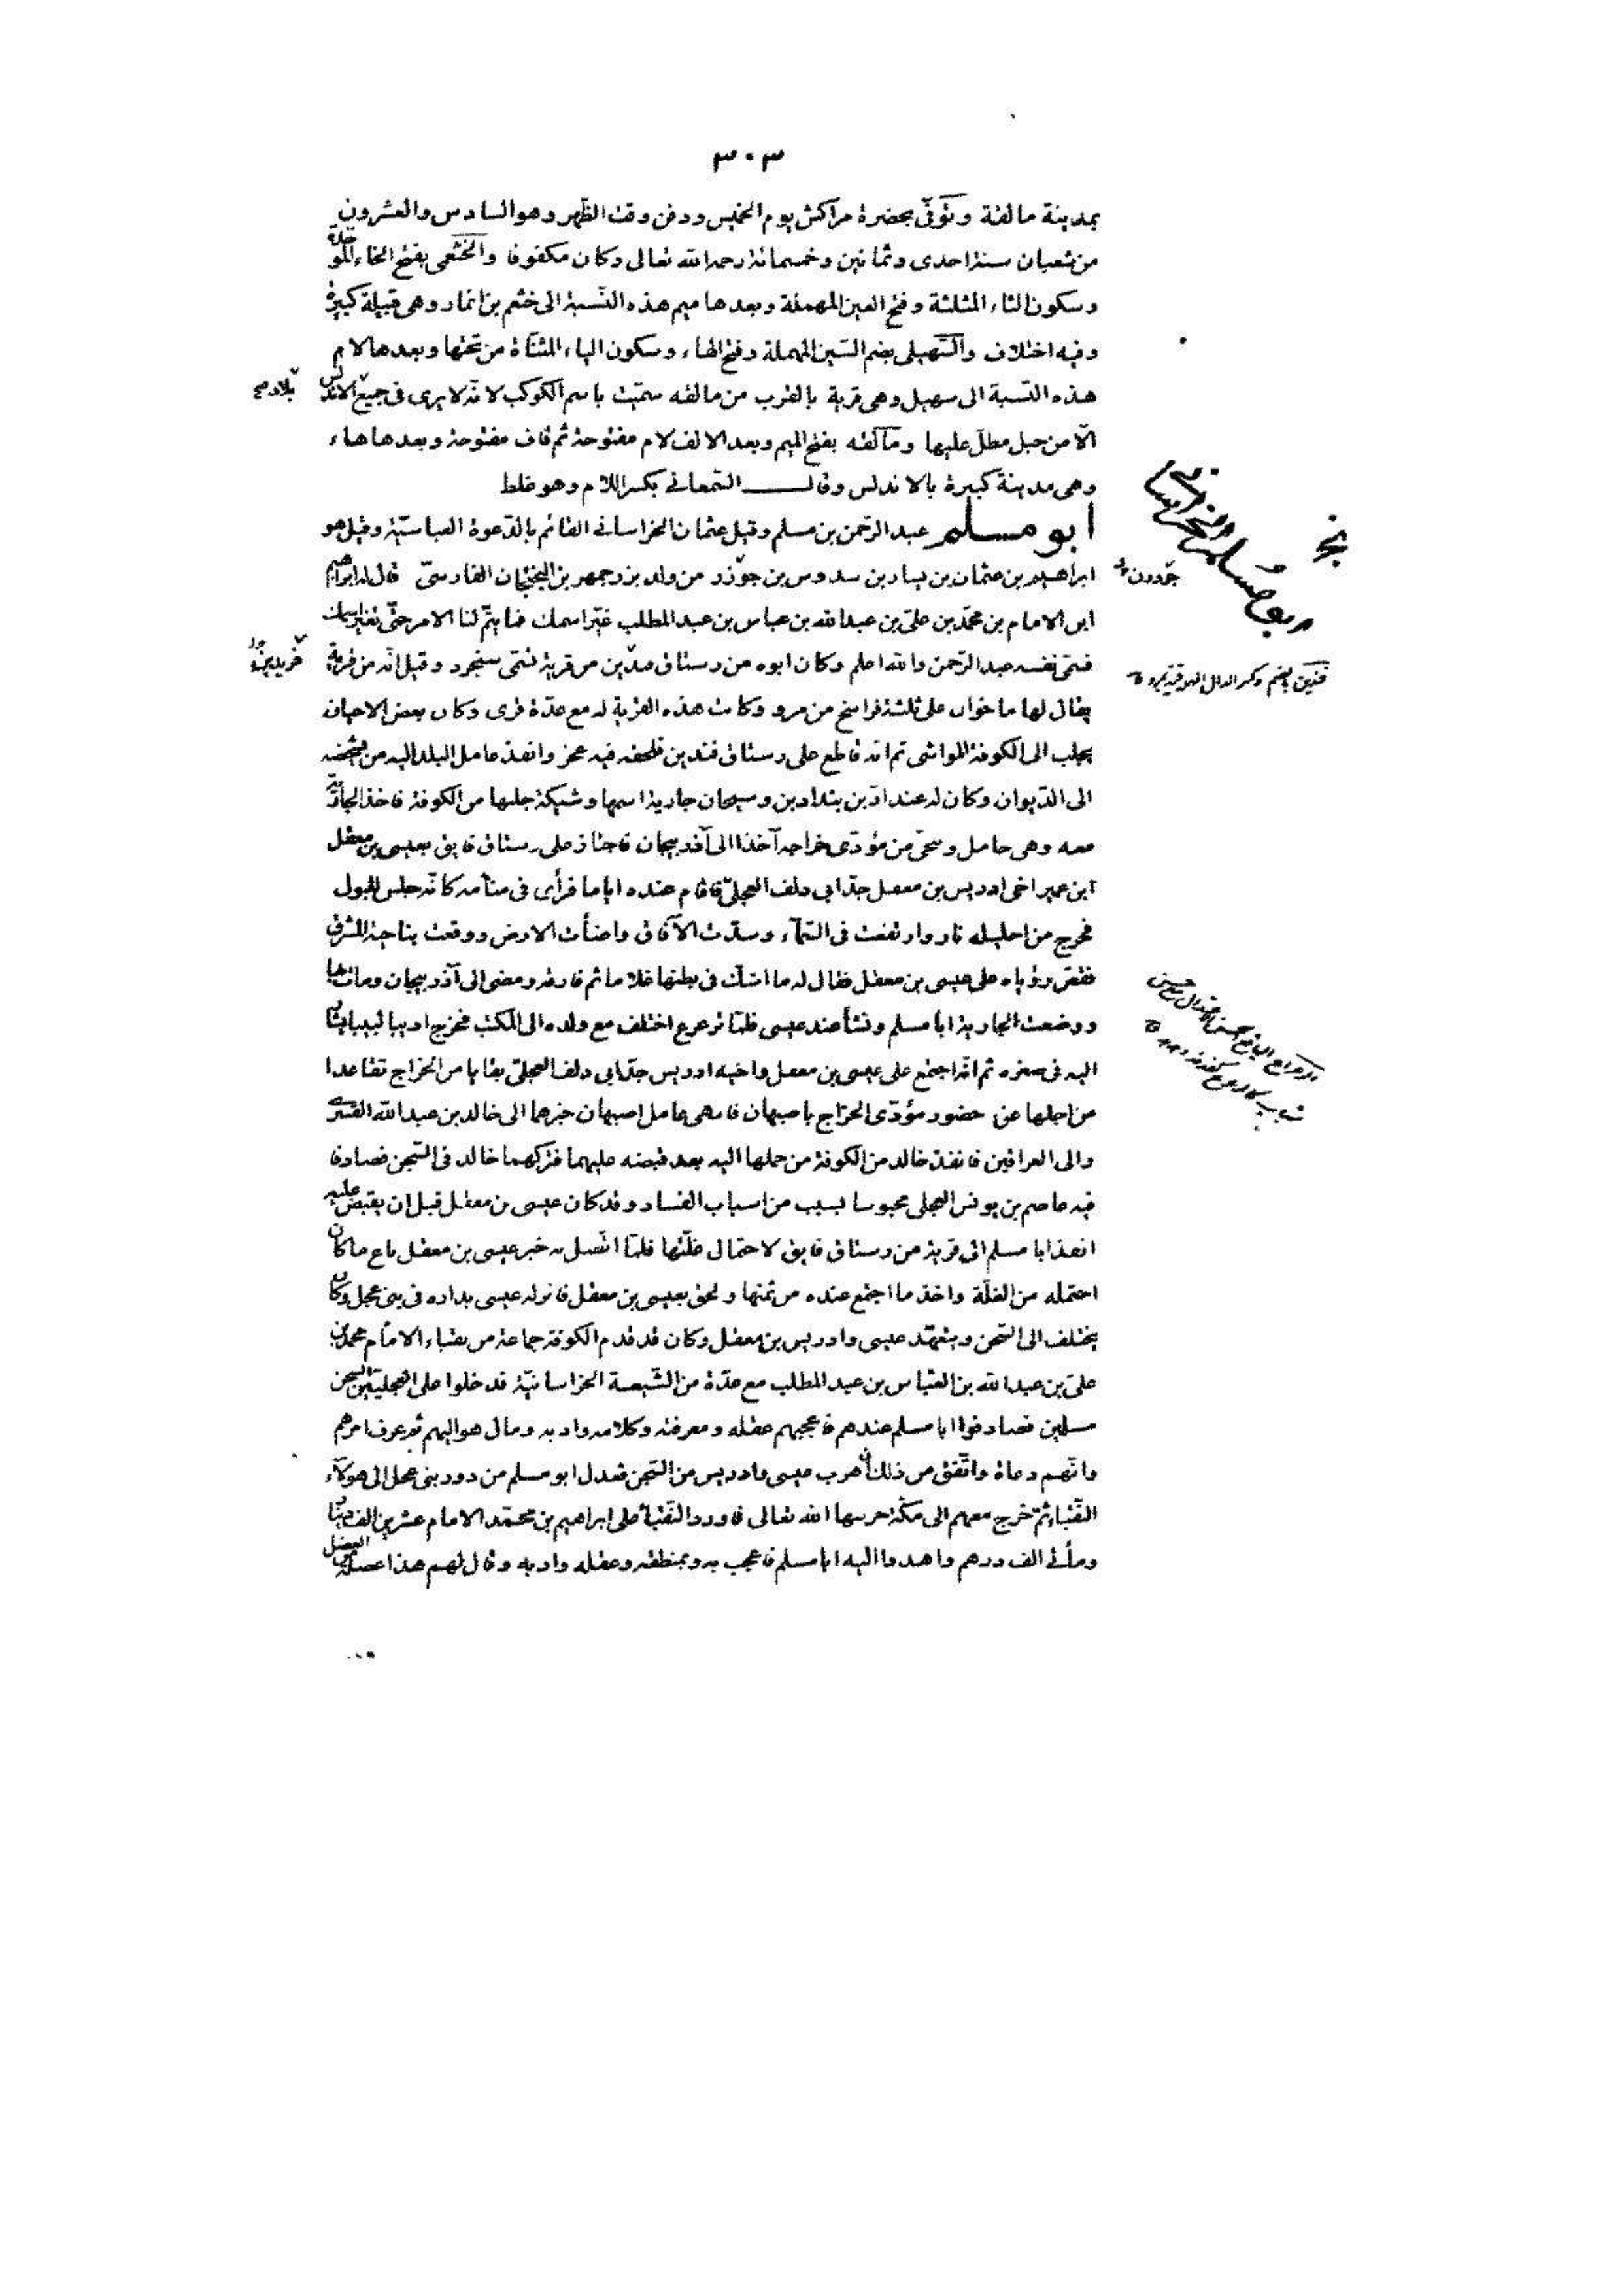 ٣٠٣
بمدينة مالقة وتوفّى بحضرة مراكش يوم الخميس ودفن وقت الظهر وهو السادس والعشرون
من شعبان سنة احدى وثمانين وخمسمائة رحمه الله تعالى وكان مكفوفا والخثعمى بفتح الخاء
وسكون الثاء المثلثة وفتح العين المهملة وبعدها ميم هذه النّسبة الى خثعم بن انمار وهى قبيلة كبيرة
وفيه اختلاف والسّهيلى بضم السّين المهملة وفتح الهاء وسكون الياء المثنّاة من تحتها وبعدها لام
هذه النّسبة الى سهيل وهى قرية بالقرب من مالقه سمّيت باسم الكوكب لانّه لا يرى فى جميع الاندلس
بلاد صح
الّا من جبل مطلّ عليها ومالقه بفتح الميم وبعد الالف لام مفتوحة ثم قاف مفتوحة وبعدها هاء
وهى مدينة كبيرة بالاندلس وقال السّمعانى بكسر اللام وهو غلط
ابو مسلم الخراسانى
أبو مسلم عبد الرّحمن بن مسلم وقيل عثمان الخراسانى القائم بالدّعوة العباسيّة وقيل هو
ابراهيم بن عثمان بن يسار بن سدوس بن جوذر من ولد بزرجمهر بن البختكان الفارسىّ قال له ابراهيم
جودرن
ابن الامام بن محمّد بن علىّ بن عبد الله بن عباس بن عبد المطلب غيّر اسمك فما يتمّ لنا الامر حتّى تغيّر اسمك
فسمّى نفسه عبد الرّحمن والله اعلم وكان ابوه من رستاق فنّدين من قرية تسمّى سنجرد وقيل انّه من قرية
يقال لها ماخوان على ثلثة فراسخ من مرو وكانت هذه القرية له مع عدّة قرى وكان بعض الاحيان
يجلب الى الكوفة المواشى ثم انّه قاطع على رستاق فندين فلحقه فيه عجز وانفذ عامل البلد اليه من يشخصه
الى الدّيوان وكان له عند اذين بنداد بن وسيحان جارية اسمها وشيكة جلبها من الكوفة فاخذ الجارية
معه وهى حامل وتنحّى من مؤدّى خراجه آخذا الى آذربيجان فاجتاز على رستاق فايق بعيسى بن معقل
ابن عمير اخى ادريس بن معقل جدّ ابى دلف العجلىّ فاقام عنده اياما فرأى فى منامه كانّه جلس للبول
فخرج من احليله نار وارتفعت فى السّمآء وسدّت الآفاق واضأت الارض ووقعت بناحية المشرق
فقصّ رؤياه على عيسى بن معقل فقال له ما اشكّ فى بطنها غلاما ثم فارقه ومضى الى آذربيجان ومات بها
ووضعت الجارية ابا مسلم ونشأ عند عيسى فلمّا ترعرع اختلف مع ولده الى المكتب فخرج اديبا لبيبا يشار
اليه فى صغره ثم انّه اجتمع على عيسى بن معقل واخيه ادريس جدّ ابى دلف العجلىّ بقايا من الخراج تقاعدا
من اجلها عن حضور مؤدّى الخراج باصبهان فانهى عامل اصبهان خبرهما الى خالد بن عبد الله القسرى
والى العراقين فانفذ خالد من الكوفة من حملها اليه بعد قبضه عليهما فتركهما خالد فى السّجن فصادفا
فيه عاصم بن يونس العجلى محبوسا بسبب من اسباب الفساد وقد كان عيسى بن معقل قبل ان يقبض عليه
انفذ ابا مسلم الى قرية من رستاق فايق لاحتمال غلّتها فلمّا اتّصل به خبر عيسى بن معقل باع ما كان
احتمله من الغلّة واخذ ما اجتمع عنده من ثمنها ولحق بعيسى بن معقل فانزله عيسى بداره فى بنى عجل وكان
يختلف الى السّجن ويتعهّد عيسى وادريس بن معقل وكان قد قدم الكوفة جماعة من نقباء الامام محمد بن
علىّ بن عبد الله بن العبّاس بن عبد المطلب مع عدّة من الشّيعة الخراسانيّة فدخلوا على العجليّين السجن
مسلمين فصادفوا ابا مسلم عندهم فاعجبهم عقله ومعرفته وكلامه وادبه ومال هو اليهم ثم عرف امرهم
وانّهم دعاة واتّفق من ذلك ان هرب عيسى وادريس من السّجن فعدل ابو مسلم من دور بنى عجل الى هؤلآء
النّقباء ثم خرج معهم الى مكّة حرسها الله تعالى فاورد النّقباء على ابراهيم بن محمّد الامام عشرين الف دينار
ومأتى الف درهم واهدوا اليه ابا مسلم فاعجب به وبمنطقه وعقله وادبه وقال لهم هذا عضلة